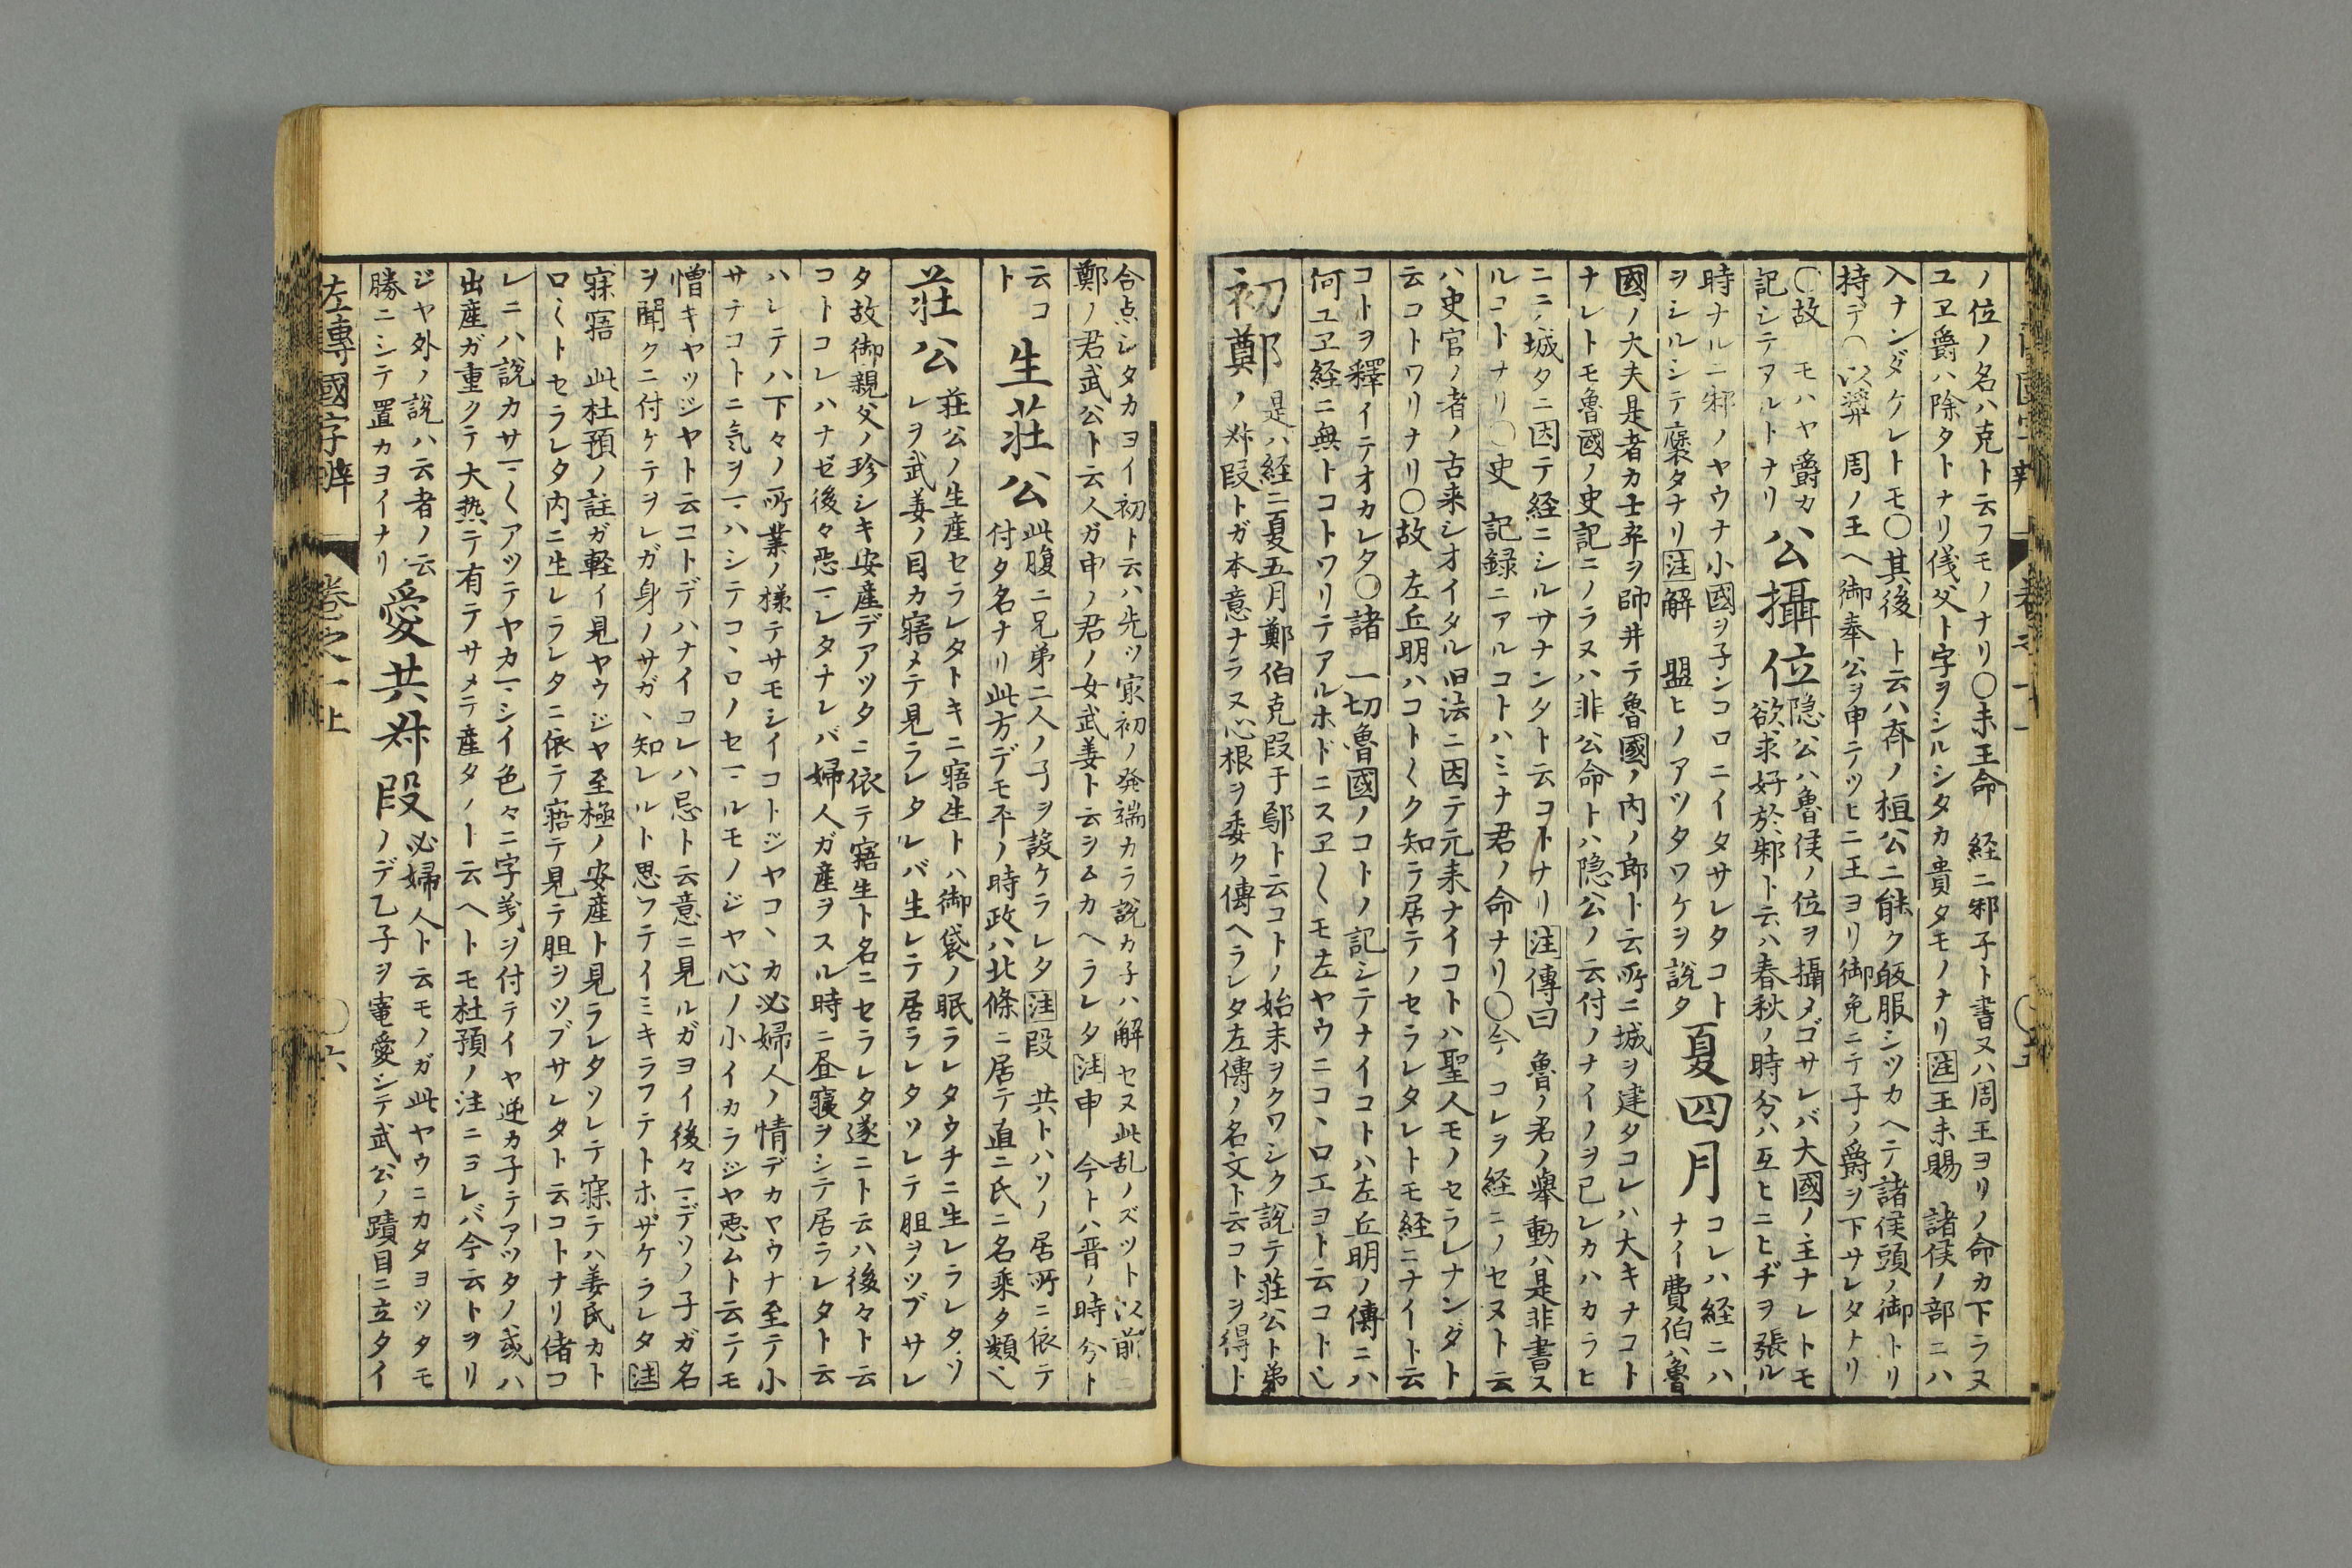 ノ位ノ名ハ克ト云フモノナリ〇未王命 経ニ邾子ト書ヌハ周王ヨリノ命カ下ラヌ
ユヱ爵ハ除タトナリ儀父ト字ヲシルシタカ貴タモノナリ注王未賜 諸侯ノ部ニハ
入ナンダケレトモ〇其後 ト云ハ斉ノ桓公ニ能ク皈服シツカヘテ諸侯頭ノ御トリ
持デ〇以奨 周ノ王ヘ御奉公ヲ申テツヒニ王ヨリ御免ニテ子ノ爵ヲ下サレタナリ
〇故 モハヤ爵カ
記シテアルトナリ
公攝位
隐公ハ魯侯ノ位ヲ攝メゴサレバ大國ノ主ナレトモ
欲求好於邾ト云ハ春秋ノ時分ハ互ヒニヒヂヲ張ル
時ナルニ邾ノヤウナ小國ヲ子ンコロニイタサレタコト
ヲシルシテ褒タナリ注解 盟ヒノアツタワケヲ説タ
夏四月
コレハ経ニハ
ナイ費伯ハ魯
國ノ大夫是者カ士卒ヲ帥井テ魯國ノ内ノ郎ト云所ニ城ヲ建タコレハ大キナコト
ナレトモ魯國ノ史記ニノラヌハ非公命トハ隐公ノ云付ノナイノヲ已レカハカラヒ
ニテ城タニ因テ経ニシルサナンタト云コトナリ注傳曰 魯ノ君ノ擧動ハ是非書ス
ルコトナリ〇史 記録ニアルコトハミナ君ノ命ナリ〇今 コレヲ経ニノセヌト云
ハ史官ノ者ノ古来シオイタル旧法ニ因テ元来ナイコトハ聖人モノセラレナンダト
云コトワリナリ〇故 左丘明ハコト〱ク知ラ居テノセラレタレトモ経ニナイト云
コトヲ釋イテオカレタ〇諸 一切魯國ノコトノ記シテナイコトハ左丘明ノ傳ニハ
何ユヱ経ニ無トコトワリテアルホドニスヱ〱モ左ヤウニコヽロエヨト云コト也
初鄭
是ハ経ニ夏五月鄭伯克叚于鄢ト云コトノ始末ヲクワシク説テ莊公ト弟
ノ叔叚トガ本意ナラヌ心根ヲ委ク傳ヘラレタ左傳ノ名文ト云コトヲ得ト
合点シタカヨイ初ト云ハ先ツ家初ノ発端カラ説カ子ハ解セヌ此乱ノズツト以前ニ
鄭ノ君武公ト云人ガ申ノ君ノ女武姜ト云ヲムカヘラレタ注申 今トハ晋ノ時分ト
云コ
ト
生莊公
此腹ニ兄弟二人ノ子ヲ設ケラレタ注叚 共トハソノ居所ニ依テ
付タ名ナリ此方デモ平ノ時政ハ北條ニ居テ直ニ氏ニ名乗タ類也
莊公
莊公ノ生産セラレタトキニ寤生トハ御袋ノ眠ラレタウチニ生レラレタソ
レヲ武姜ノ目カ寤メテ見ラレタレバ生レテ居ラレタソレテ胆ヲツブサレ
タ故御親父ノ珍シキ安産デアツタニ依テ寤生ト名ニセラレタ遂ニト云ハ後々ト云
コトコレハナゼ後々悪マレタナレバ婦人ガ産ヲスル時ニ昼寝ヲシテ居ラレタト云
ハレテハ下々ノ所業ノ様テサモシイコトジヤコヽカ必婦人ノ情デカヤウナ至テ小
サナコトニ気ヲマハシテコヽロノセマルモノジヤ心ノ小イカラジヤ悪ムト云テモ
憎キヤツジヤト云コトデハナイコレハ忌ト云意ニ見ルガヨイ後々マデソノ子ガ名
ヲ聞クニ付ケテヲレガ身ノサガヽ知レルト思フテイミキラフテトホザケラレタ注
寐寤 此杜預ノ註ガ軽イ見ヤウジヤ至極ノ安産ト見ラレタソレテ寐テハ姜氏カト
ロ〱トセラレタ内ニ生レラレタニ依テ寤テ見テ胆ヲツブサレタト云コトナリ偖コ
レニハ説カサマ〱アツテヤカマシイ色々ニ字義ヲ付テイヤ逆カ子テアツタノ或ハ
出産ガ重クテ大热テ有テサメテ産タノト云ヘトモ杜預ノ注ニヨレバ今云トヲリ
ジヤ外ノ説ハ云者ノ云
勝ニシテ置カヨイナリ
愛共叔叚
必婦人ト云モノガ此ヤウニカタヨツタモ
ノデ乙子ヲ寵愛シテ武公ノ蹟目ニ立タイ
左傳國字辨 卷之一上 〇六